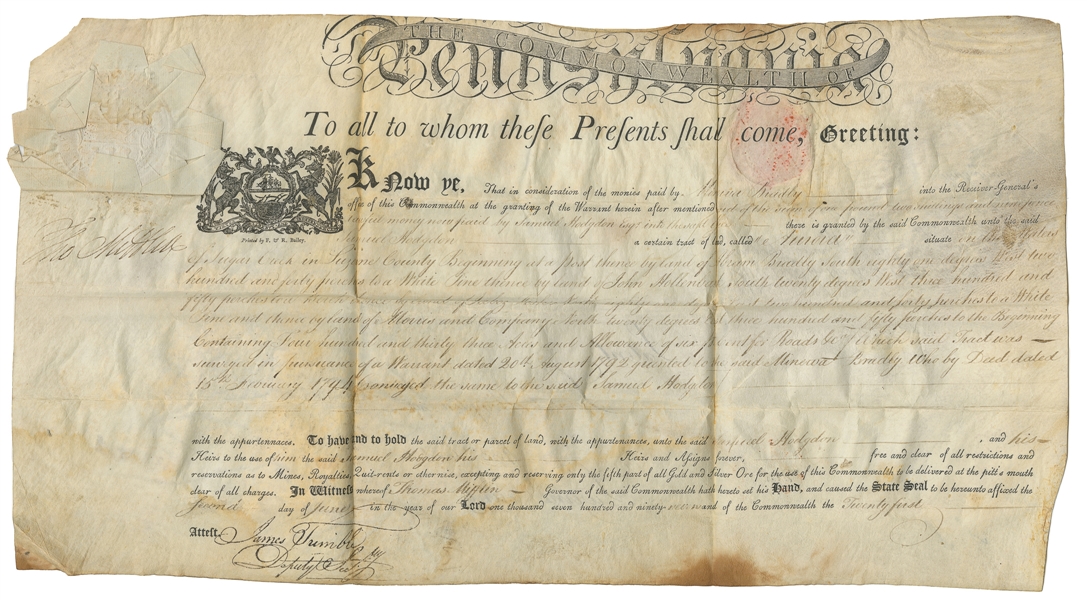 THE COMMONWEALTH OF
Pennsylvania
To all to whom theſe Preſents ſhall come, Greeting:
Know ye, That in consideration of the monies paid by Bradly into the Receiver General's
office of this Commonwealth at the granting of the Warrant herein after mentioned and of the sum of pound two
lawful money now paid by Samuel Hodgdon Esqr. into the there is granted by the said Commonwealth unto the said
Samuel Hodgdon a certain tract of land, called situate in the Waters
of Sugar Creek in Luzerne County Beginning at a Post thence by land of Bradly South eighty one degrees West two
hundred and forty perches to a White Pine thence by land of John Hollenback South twenty degrees West three hundred and
fifty perches to a thence by land of East two hundred and forty perches to a White
Pine and thence by land of Morris and Company North twenty degrees three hundred and fifty perches to the Beginning
Containing Four hundred and thirty three Acres and Allowance of six p Cent for Roads &c. Which said Tract was
surveyed in pursuance of a Warrant dated 20th. August 1792 granted to the said Bradly Who by Deed dated
15th. February 1794 Conveyed the same to the said Samuel Hodgdon
with the appurtennaces. To have and to hold the said tract or parcel of land, with the appurtenances, unto the said Samuel Hodgdon , and his
Heirs to the use of him the said Samuel Hodgdon his Heirs and Aſsigns forever, free and clear of all restrictions and
reservations as to Mines, Royalties, Quit-rents or otherwise, excepting and reserving only the fifth part of all Gold and Silver Ore for the use of this Commonwealth to be delivered at the pitt's mouth
clear of all charges. In Witneſs whereof Thomas Mifflin Governor of the said Commonwealth hath hereto set his Hand, and caused the State Seal to be hereunto affixed the
second day of June in the year of our Lord one thousand seven hundred and ninety- and of the Commonwealth the Twenty first
Printed by F. & R. Bailey.
Tho Mifflin
Atteſt.
James Trimble
Deputy Secy